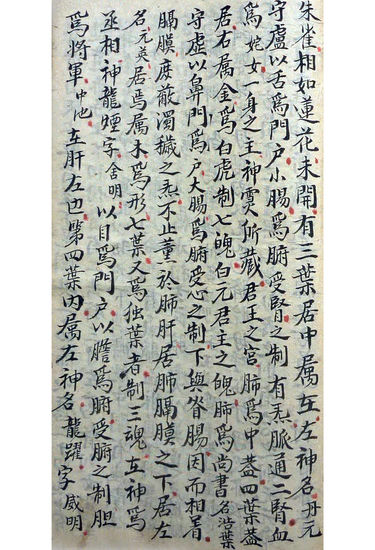 朱雀相如蓮花未開有三葉居中属左神名丹元
守盧以舌爲門户小腸爲腑受腎之制有炁脈通二腎血
爲姹女一身之主神霊所藏君王之宮肺爲中蓋四葉盖
居右属金爲白虎制七魄白元君主之魄肺爲尚書名浩葉
守虚以鼻門爲户大腸爲腑受心之制下與脊腸因而相着
膈膜庶蔽濁穢之炁不止薫於肺肝居肺膈膜之下居左
名元英居焉属木爲形七葉又爲独葉者制三魂神爲
丞相神龍煙字含明以目爲門户以膽爲腑受腑之制胆
爲將軍中池左肝左也第四葉内属左神名龍躍字威明